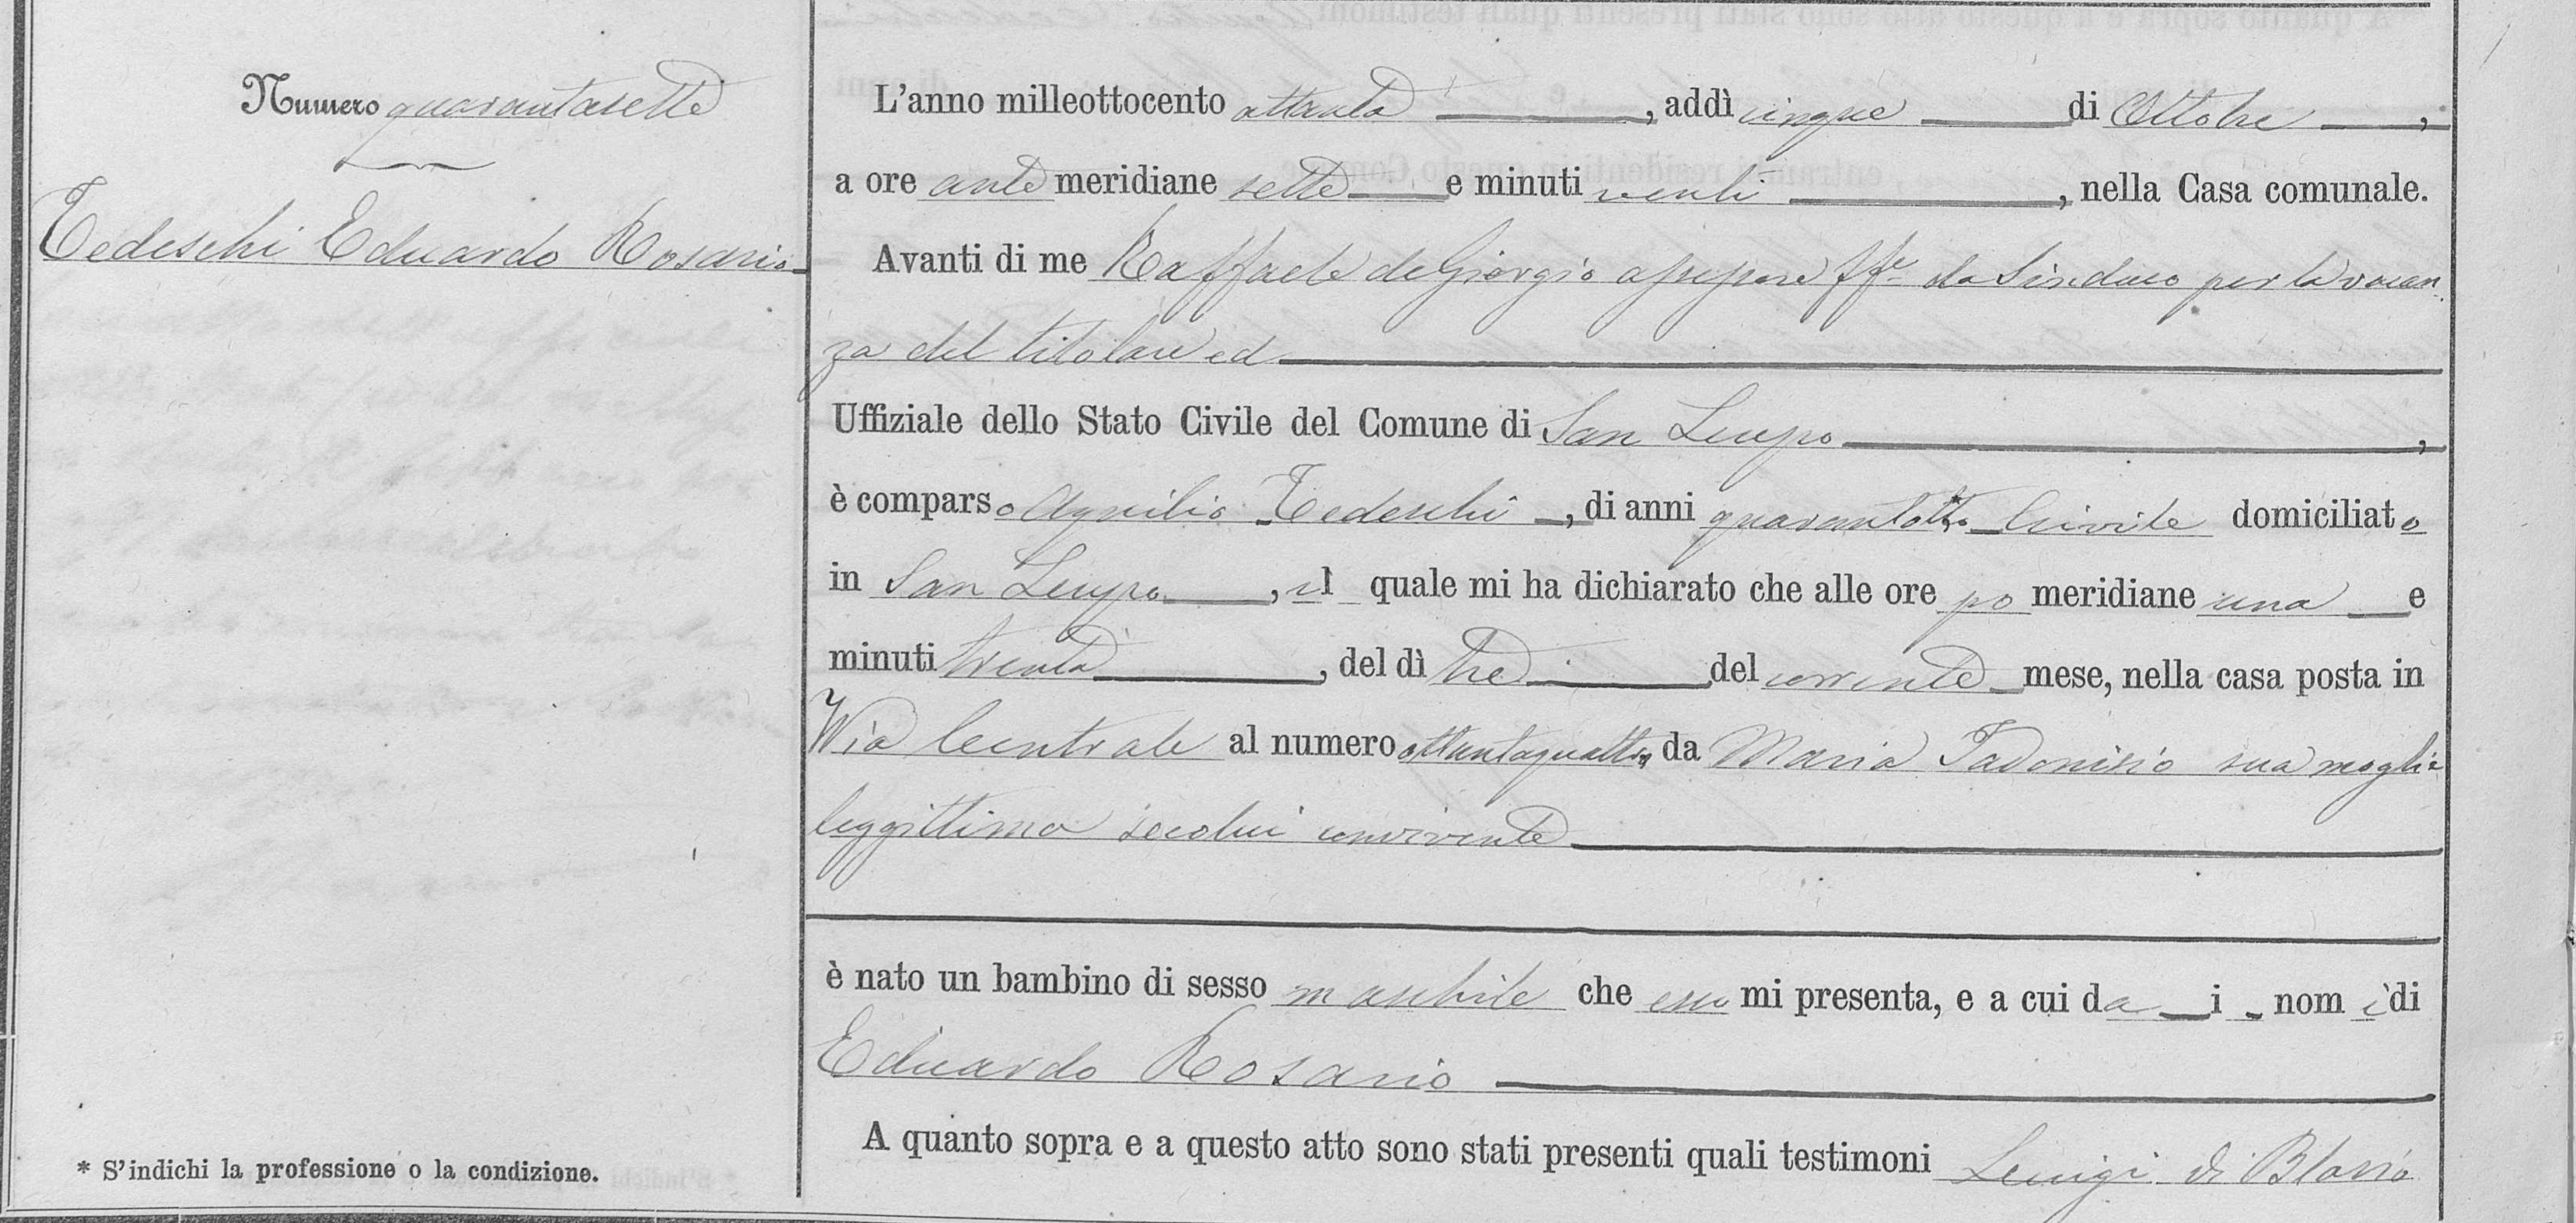 Numero quarantasette
Tedeschi Eduardo Rosario
* S'indichi la professione o la condizione.
L'anno milleottocento ottanta, addì cinque di Ottobre,
a ore ante meridiane sette e minuti venti, nella Casa comunale.
Avanti di me Raffaele de Giorgio assessore ff.e da Sindaco per la vacan
za del titolare ed
Uffiziale dello Stato Civile del Comune di San Lupo,
è comparso Aquilio Tedeschi, di anni quarantotto Civile domiciliato
in San Lupo, il quale mi ha dichiarato che alle ore po meridiane una e
minuti trenta, del dì tre del corrente mese, nella casa posta in
Via Centrale al numero ottantaquattro, da Maria Iadonisio sua moglie
leggittima secolui convivente
è nato un bambino di sesso maschile che esso mi presenta, e a cui da i nomi di
Eduardo Rosario
A quanto sopra e a questo atto sono stati presenti quali testimoni Luigi di Blasio